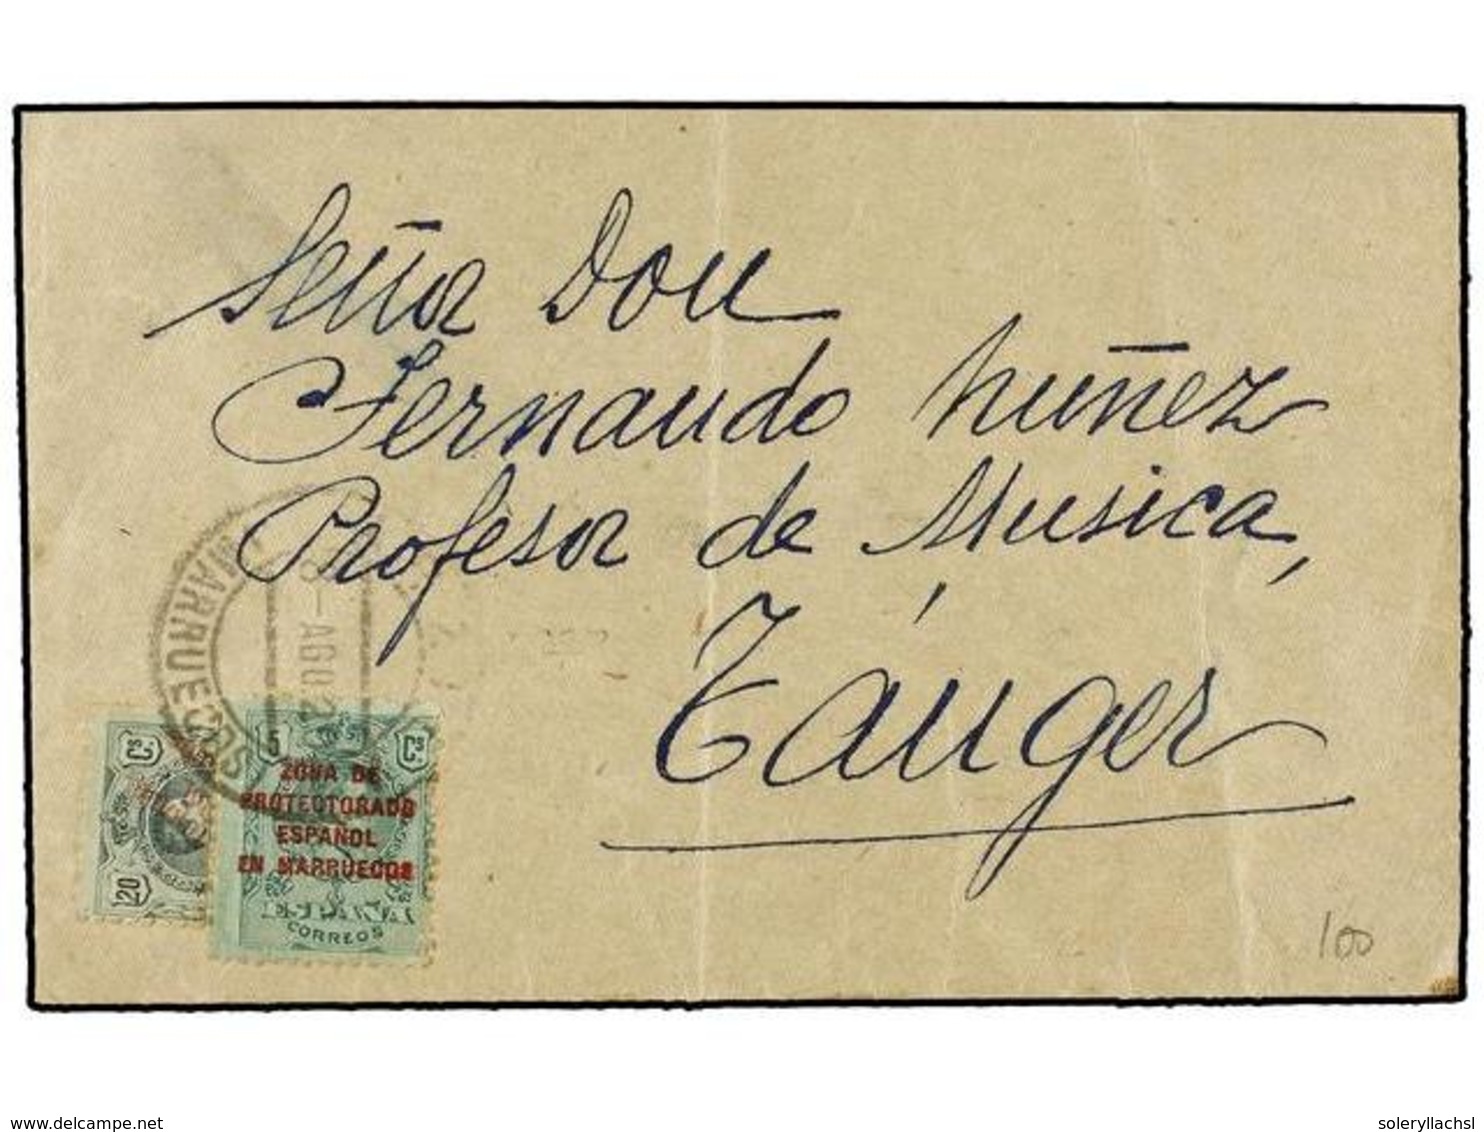 Señor Don
Fernando Núñez
Profesor de Musica,
Tánger
MARRUECOS
AGO
5 Cs
ZONA DE
PROTECTORADO
ESPAÑOL
EN MARRUECOS
CORREOS
Cs
20
100
delcampe.net
soleryllachsl